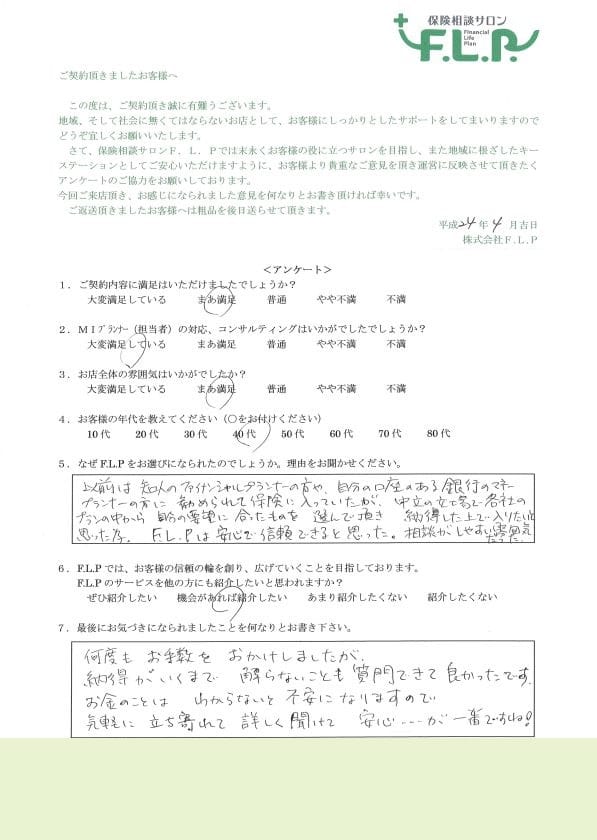 保険相談サロン
Financial
Life
Plan
F.L.P.
ご契約頂きましたお客様へ
この度は、ご契約頂き誠に有難うございます。
地域、そして社会に無くてはならないお店として、お客様にしっかりとしたサポートをしてまいりますので
どうぞ宜しくお願いいたします。
さて、保険相談サロンF．L．P．では末永くお客様の役に立つサロンを目指し、また地域に根ざしたキー
ステーションとしてご安心いただけますように、お客様より貴重なご意見を頂き運営に反映させて頂きたく
アンケートのご協力をお願いしております。
今回ご来店頂き、お感じになられました意見を何なりとお書き頂ければ幸いです。
ご返送頂きましたお客様へは粗品を後日送らせて頂きます。
平成 24 年 4 月吉日
株式会社F.L.P
＜アンケート＞
1．ご契約内容に満足はいただけましたでしょうか？
大変満足している　まあ満足　普通　やや不満　不満
2．MIプランナー（担当者）の対応、コンサルティングはいかがでしたでしょうか？
大変満足している　まあ満足　普通　やや不満　不満
3．お店全体の雰囲気はいかがでしたか？
大変満足している　まあ満足　普通　やや不満　不満
4．お客様の年代を教えてください（○をお付けください）
10代　20代　30代　40代　50代　60代　70代　80代
5．なぜF.L.Pをお選びになられたのでしょうか。理由をお聞かせください。
以前は 知人のファイナンシャルプランナーの方や、自分の口座のある銀行のマネー
プランナーの方に 勧められて保険に入っていたが、中立の立場で各社の
プランの中から 自分の要望に合ったものを 選んで頂き 納得した上で入りたいと
思った為。 F.L.Pは安心で信頼できると思った。相談がしやすい雰囲気
だった。
6．F.L.Pでは、お客様の信頼の輪を創り、広げていくことを目指しております。
F.L.Pのサービスを他の方にも紹介したいと思われますか？
ぜひ紹介したい　機会があれば紹介したい　あまり紹介したくない　紹介したくない
7．最後にお気づきになられましたことを何なりとお書き下さい。
何度も お手数を おかけしましたが、
納得がいくまで 解らないことも 質問できて 良かったです。
お金のことは わからないと 不安になりますので
気軽に 立ち寄れて 詳しく聞けて 安心……が一番ですね！